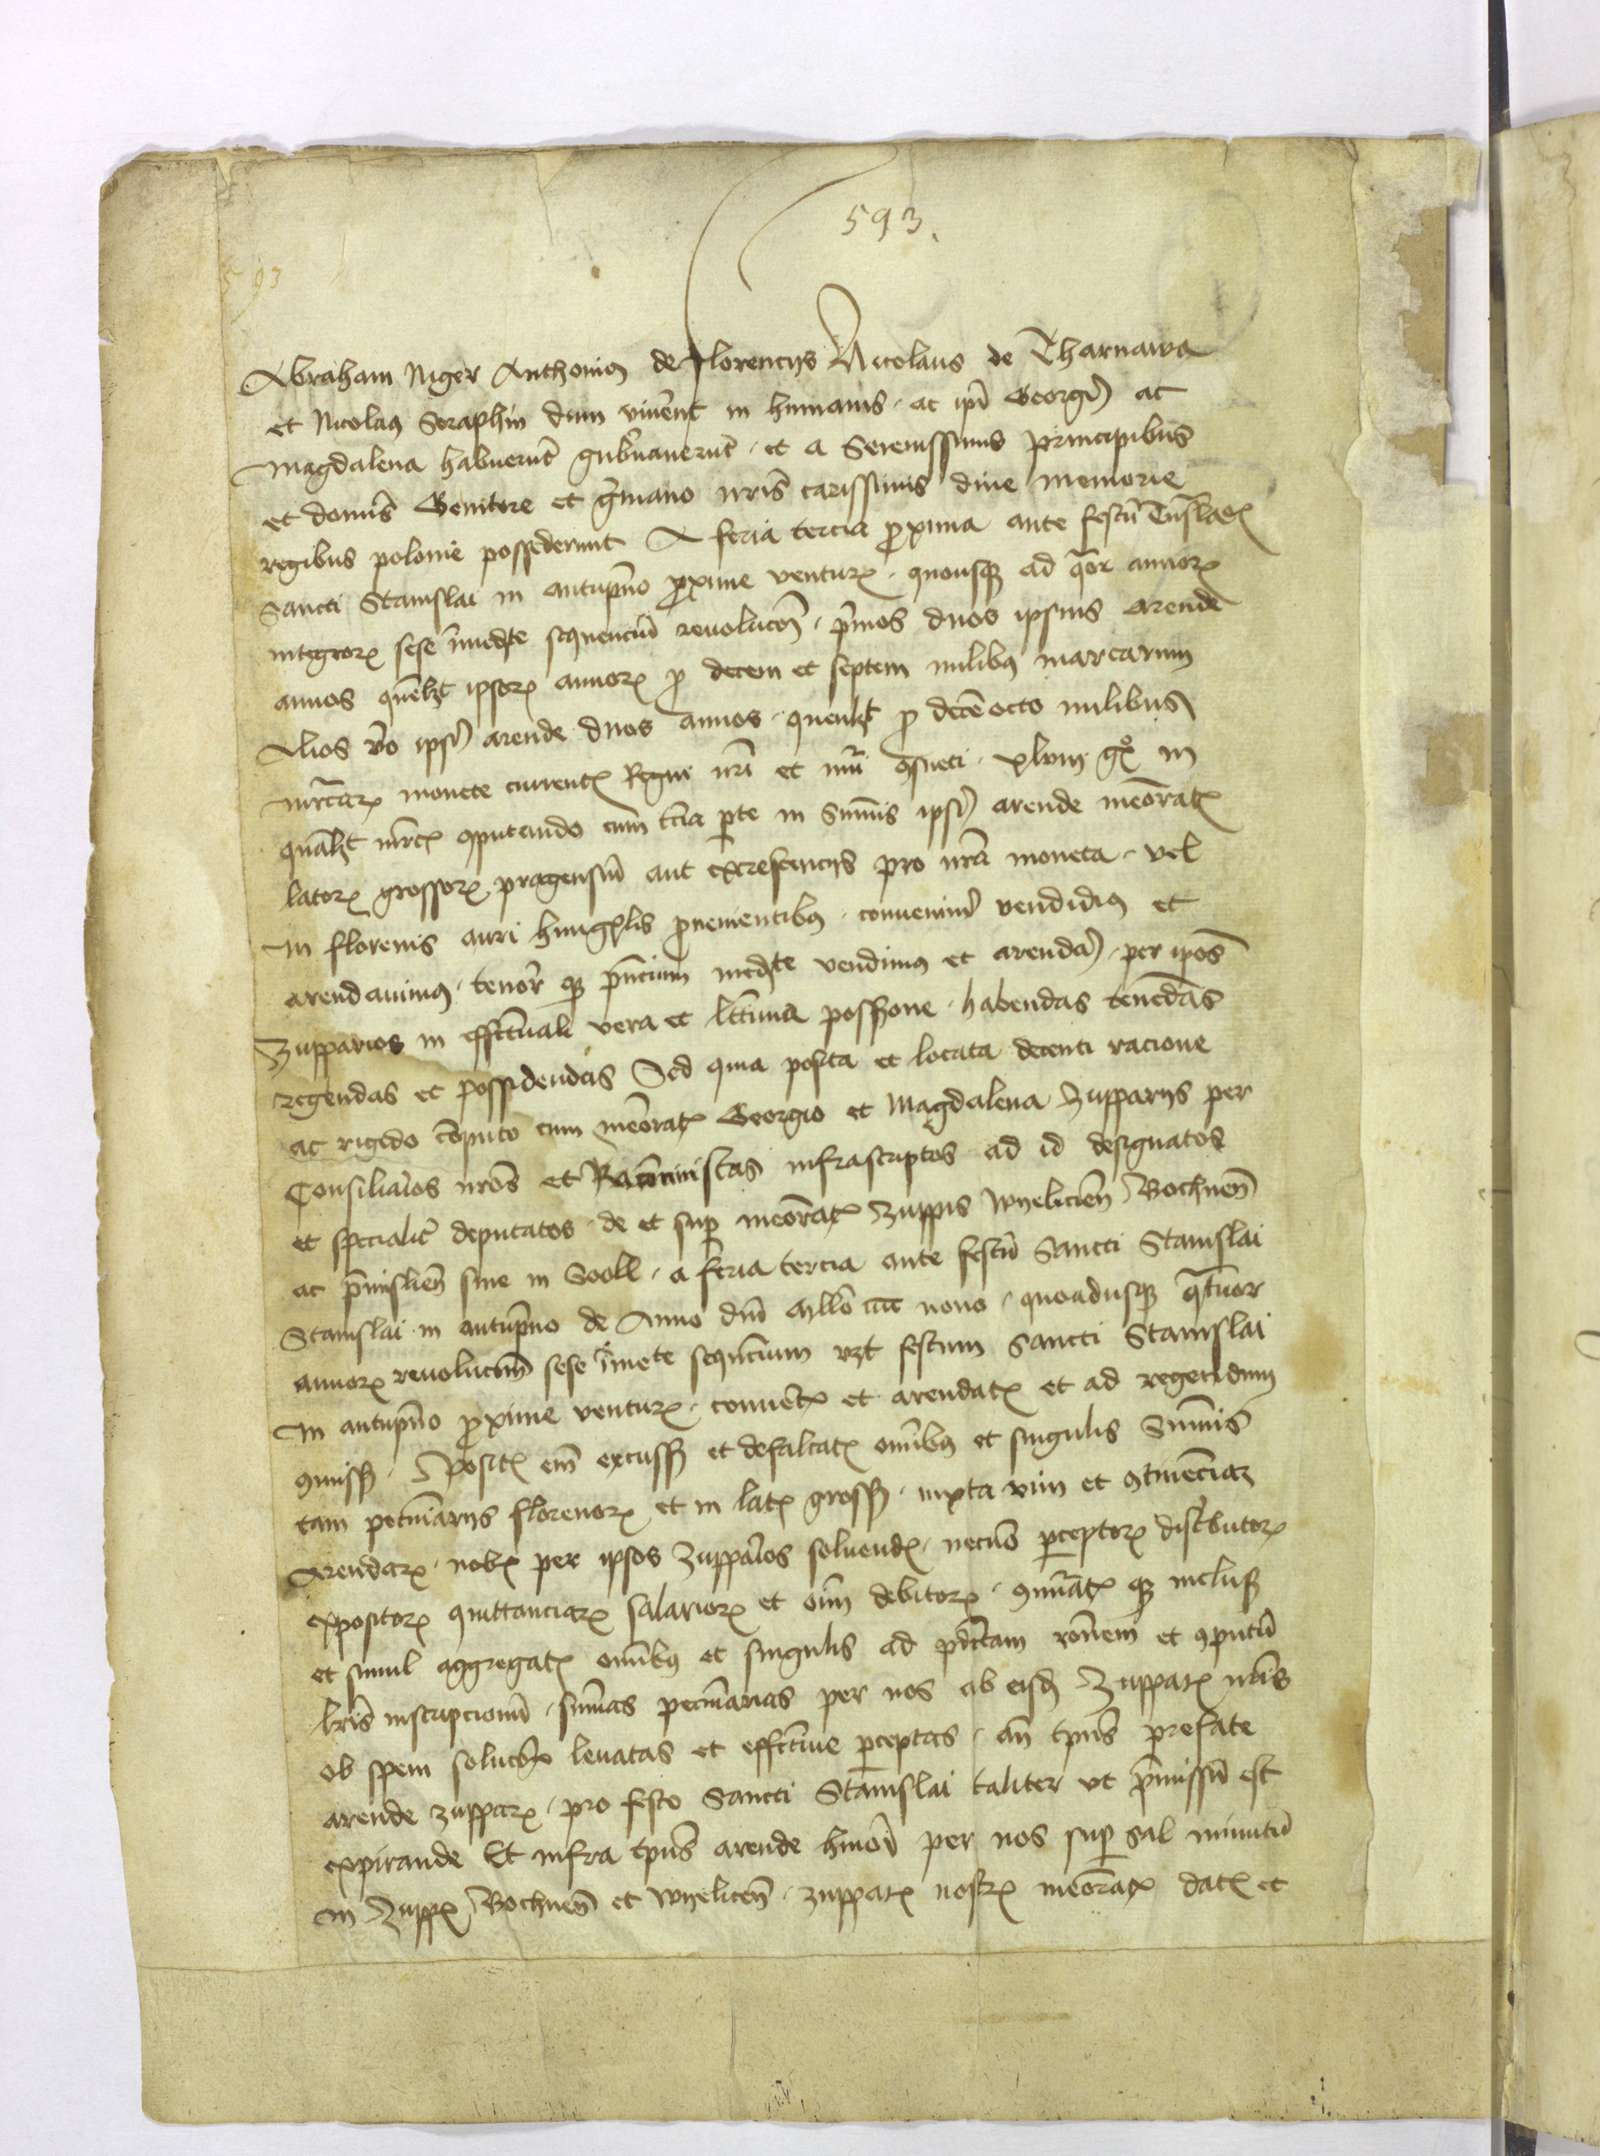 593.
593
Abraham Niger Anthonius de Florencijs Nicolaus de Tharnawa
et Nicolaus Seraphin dum viverent in humanis . ac ipi Georgius ac
Magdalena habuerunt gubernaverunt . et a Serenissimis principibus
et dominis Genitore et germano nris carissimis dive memorie
regibus polonie possederunt A feria tercia proxima ante festum Translacionis
Sancti Stanislai in autumpno proxime venturum . quousque ad quatuor annorum
integrorum sese immediate sequencium revolucionem . primos duos ipsius arende
annos quemlibet ipsorum annorum pro decem et septem milibus marcarum
Alios vero ipsius arende duos annos . quemlibet pro decem octo milibus
marcarum monete currentis Regni nri et numeri consueti . xlviii gros in
quamlibet marcam computando cum tercia parte in summis ipsius arende memoratis
latorum grossorum pragensium aut excrescencijs pro nra moneta . vel
in florenis auri hungaricalis provenientibus . convenimus vendidimus et
arendavimus . tenore que presencium mediante vendimus et arendamus . per ipsos
Zupparios in effectuali vera et legittima possessione . habendas tenendas
regendas et possidendas Sed quia posita et locata decenti racione
ac rigido computo cum memoratis Georgio et Magdalena Zupparijs per
Consiliarios nros et infrascriptos ad id designatos
et specialiter deputatos . de et super memoratis Zuppis Wyeliciensi Bochnensi
ac premisliensi sive in Sooll . a feria tercia ante festum Sancti Stanislai
Stanislai in autumpno de Anno dni nono . quoadusque quatuor
annorum revolucionem sese immediate sequencium vzt festum Sancti Stanislai
in autumpno proxime venturum . conventis et arendatis et ad regendum
commissis . Positis enim excussis et defalcatis omnibus et singulis Summis
tam pecuniarijs florenorum et in latis grossis . iuxta vim et continenciam
Arendarum . nobis per ipsos Zupparios solvendis . necnon perceptorum distributorum
expositorum quittanciarum salariorum et omnium debitorum . que inclusis
et simul aggregatis omnibus et singulis ad predictam racionem et computum
lris inscripcionum . summas pecuniarias per nos ab eisdem Zupparijs nris
ob spem solucionis levatas et effective perceptas . ante tempus prefate
arende zupparum . pro festo Sancti Stanislai taliter ut premissum est
expirande Et infra tempus arende huiusmodi per nos super sal minutum
in Zuppis Bochnensi et Wyeliciensi . zupparijs nostris memoratis datis et